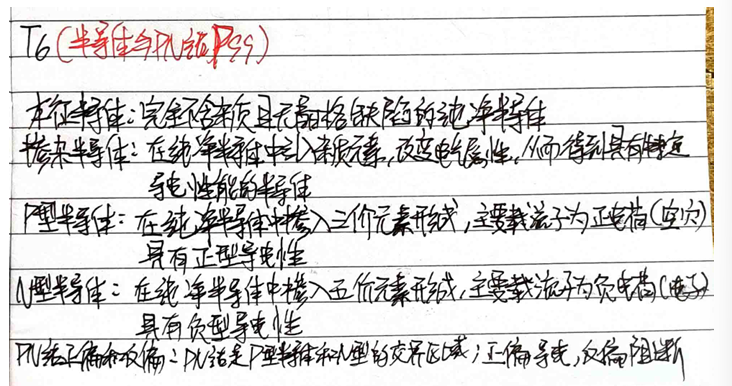 T6(半导体与PN结,P99)
本征半导体:完全不含杂质且无晶格缺陷的纯净半导体
掺杂半导体:在纯净半导体中引入杂质元素,改变电气属性,从而得到具有特定
导电性能的半导体
P型半导体:在纯净半导体中掺入三价元素形成,主要载流子为正电荷(空穴)
具有正型导电性
N型半导体:在纯净半导体中掺入五价元素形成,主要载流子为负电荷(电子)
具有负型导电性
PN结正偏和反偏:PN结是P型半体和N型的交界区域;正偏导电,反偏阻断